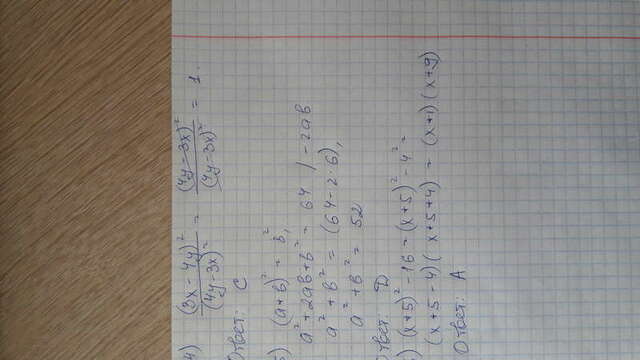 4) (3x - 4y)² / (4y - 3x)² = (4y - 3x)² / (4y - 3x)² = 1.
Ответ: C
5) (a+b)² = 8²,
a² + 2ab + b² = 64 / -2ab
a² + b² = (64 - 2·6),
a² + b² = 52
Ответ: D
) (x+5)² - 16 = (x+5)² - 4² =
(x+5-4)(x+5+4) = (x+1)(x+9)
Ответ: A